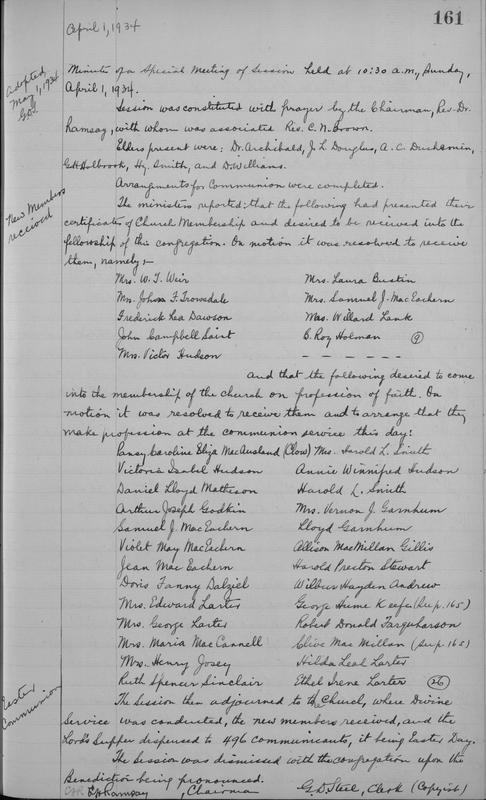 161
April 1, 1934
adopted
May 1, 1934
Minutes of a Special Meeting of Session held at 10:30 a.m., Sunday,
April 1, 1934.
Session was constituted with prayer by the Chairman, Rev. Dr.
Ramsay, with whom was associated Rev. C. N. Brown.
Elders present were: Dr. Archibald, J. L. Douglas, A. C. Duchemin,
G. H. Holbrook, Hy. Smith, and D. Williams.
Arrangements for Communion were completed.
New Members
received
The ministers reported that the following had presented their
certificates of Church Membership and desired to be received into the
fellowship of this congregation. On motion it was resolved to receive
them, namely:-
Mrs. W. T. Weir Mrs. Laura Bustin
Mrs. John F. Trowsdale Mrs. Samuel J. MacEachern
Frederick Lea Dawson Mrs. Willard Lank
John Campbell B. Roy Holman (9)
Mrs. Victor Hudson - - - - - -
and that the following desired to come
into the membership of the church on profession of faith. On
motion it was resolved to receive them and to arrange that they
make profession at the communion service this day:
Pansy Caroline Eliza MacAusland (Clow) Mrs. Harold L. Smith
Victoria Isabel Hudson Annie Winnifred Hudson
Daniel Lloyd Matheson Harold L. Smith
Arthur Joseph Godkin Mrs. Vernon J. Garnhum
Samuel J. MacEachern Lloyd Garnhum
Violet May MacEachern Allison MacMillan Gillis
Jean MacEachern Harold Preston Stewart
Doris Fanny Dalziel Wilbur Hayden Andrew
Mrs. Edward Larter George Hume Keefe (See p. 165)
Mrs. George Larter Robert Donald Farquharson
Mrs. Maria MacCannell Clive MacMillan (See p. 165)
Mrs. Henry Josey Hilda Leah Larter
Ruth Spencer Sinclair Ethel Irene Larter (26)
Easter
Communion
The Session then adjourned to the Church, where Divine
Service was conducted, the new members received, and the
Lord's Supper dispensed to 496 communicants, it being Easter Day.
The Session was dismissed with the congregation upon the
Benediction being pronounced.
Ramsay, Chairman G. D. Steel, Clerk (Copyist)